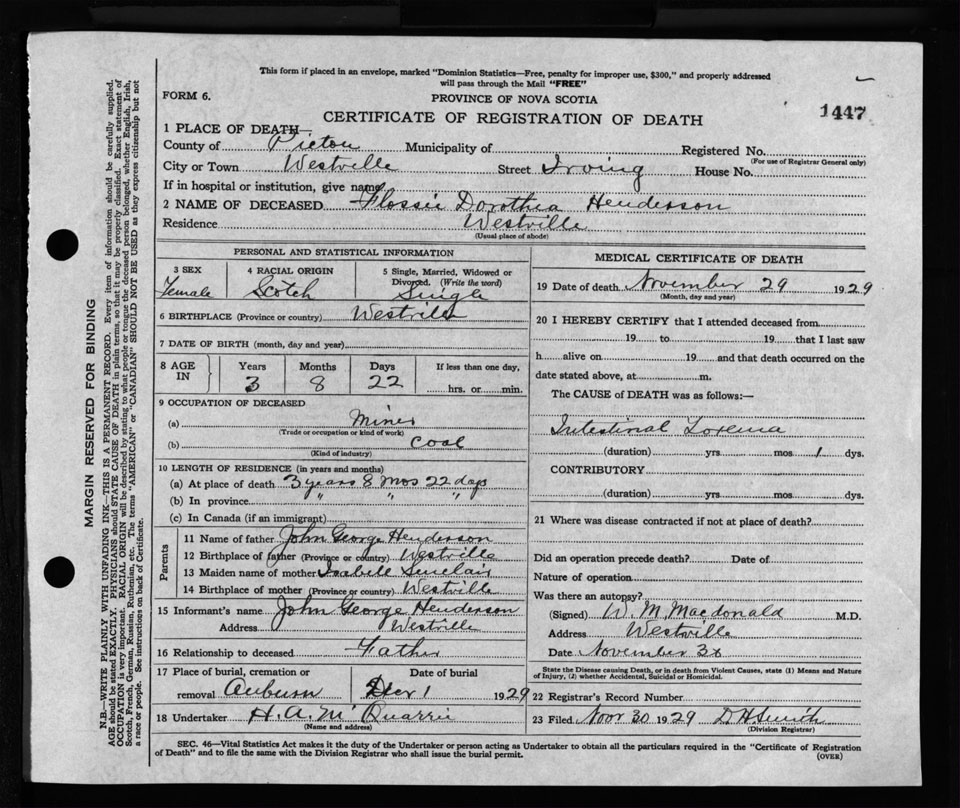 This form if placed in an envelope, marked "Dominion Statistics—Free, penalty for improper use, $300," and properly addressed
will pass through the Mail "FREE"
FORM 6.
PROVINCE OF NOVA SCOTIA
1447
CERTIFICATE OF REGISTRATION OF DEATH
1 PLACE OF DEATH—
County of Pictou Municipality of Registered No.
(For use of Registrar General only)
City or Town Westville Street Irving House No.
If in hospital or institution, give name
2 NAME OF DECEASED Flossie Dorothea Henderson
Residence Westville
(Usual place of abode)
PERSONAL AND STATISTICAL INFORMATION
3 SEX 4 RACIAL ORIGIN 5 Single, Married, Widowed or
Divorced. (Write the word)
Female Scotch Single
6 BIRTHPLACE (Province or country) Westville
7 DATE OF BIRTH (month, day and year)
8 AGE IN Years Months Days If less than one day,
3 8 22 hrs. or min.
9 OCCUPATION OF DECEASED
(a) Miner
(Trade or occupation or kind of work)
(b) Coal
(Kind of industry)
10 LENGTH OF RESIDENCE (in years and months)
(a) At place of death 3 years 8 mos 22 days
(b) In province " " "
(c) In Canada (if an immigrant)
Parents
11 Name of father John George Henderson
12 Birthplace of father (Province or country) Westville
13 Maiden name of mother Isabell Sinclair
14 Birthplace of mother (Province or country) Westville
15 Informant's name John George Henderson
Address Westville
16 Relationship to deceased Father
17 Place of burial, cremation or Date of burial
removal Auburn Dec 1 1929
18 Undertaker H. A. McQuarrie
(Name and address)
MEDICAL CERTIFICATE OF DEATH
19 Date of death November 29 1929
(Month, day and year)
20 I HEREBY CERTIFY that I attended deceased from
19 to 19 that I last saw
h alive on 19 and that death occurred on the
date stated above, at m.
The CAUSE of DEATH was as follows:—
Intestinal Toxemia
(duration) yrs. mos 1 dys.
CONTRIBUTORY
(duration) yrs. mos. dys.
21 Where was disease contracted if not at place of death?
Did an operation precede death? Date of
Nature of operation
Was there an autopsy?
(Signed) W. M. Macdonald M.D.
Address Westville
Date November
State the Disease causing Death, or in death from Violent Causes, state (1) Means and Nature
of Injury, (2) whether Accidental, Suicidal or Homicidal.
22 Registrar's Record Number
23 Filed Nov 30 1929 D H Smith
(Division Registrar)
SEC. 46—Vital Statistics Act makes it the duty of the Undertaker or person acting as Undertaker to obtain all the particulars required in the "Certificate of Registration
of Death" and to file the same with the Division Registrar who shall issue the burial permit.
(OVER)
MARGIN RESERVED FOR BINDING
N.B.—WRITE PLAINLY WITH UNFADING INK—THIS IS A PERMANENT RECORD. Every item of information should be carefully supplied.
AGE should be stated EXACTLY. PHYSICIANS should STATE CAUSE OF DEATH in plain terms, so that it may be properly classified. Exact statement of
OCCUPATION is very important. RACIAL ORIGIN will be described by stating to what people or tongue the deceased person belonged, whether English, Irish,
Scotch, French, German, Russian, Ruthenian, etc. The terms "AMERICAN" or "CANADIAN" SHOULD NOT BE USED as they express citizenship but not
a race or people. See instructions on back of Certificate.